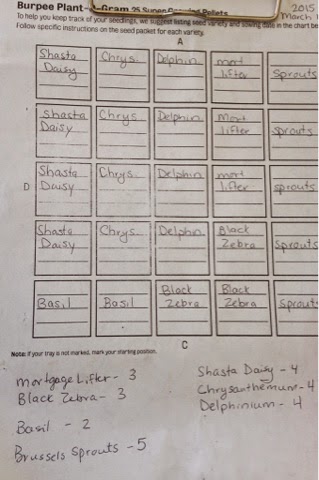 Burpee Plant-n-Gram 25 Super Growing Pellets
2015
March 1
To help you keep track of your seedlings, we suggest listing seed variety and sowing date in the chart be
Follow specific instructions on the seed packet for each variety.
A
Shasta Daisy Chrys. Delphin. mort lifter sprouts
Shasta Daisy Chrys. Delphin Mort lifter sprouts
D
Shasta Daisy Chrys. Delphin mort lifter sprouts
Shasta Daisy Chrys. Delphin Black Zebra sprouts
Basil Basil Black Zebra Black Zebra Sprout
C
Note: If your tray is not marked, mark your starting position.
mortgage Lifter - 3
Black Zebra - 3
Basil - 2
Brussels Sprouts - 5
Shasta Daisy - 4
Chrysanthemum - 4
Delphinium - 4